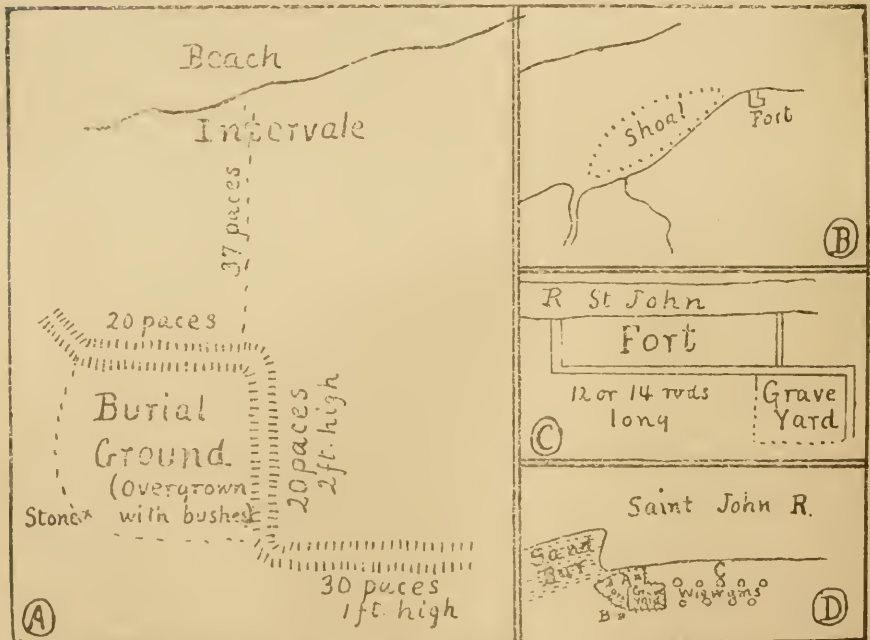 Beach
Intervale
37 paces
20 paces
Burial
Ground
(Overgrown
with bushes)
Stone x
20 paces
2 ft. high
30 paces
1 ft. high
A
Shoal
Fort
B
R St John
Fort
12 or 14 rods
long
Grave
Yard
C
Saint John R.
Sand
Bar
A
Fort
C
Wigwgms
B
D